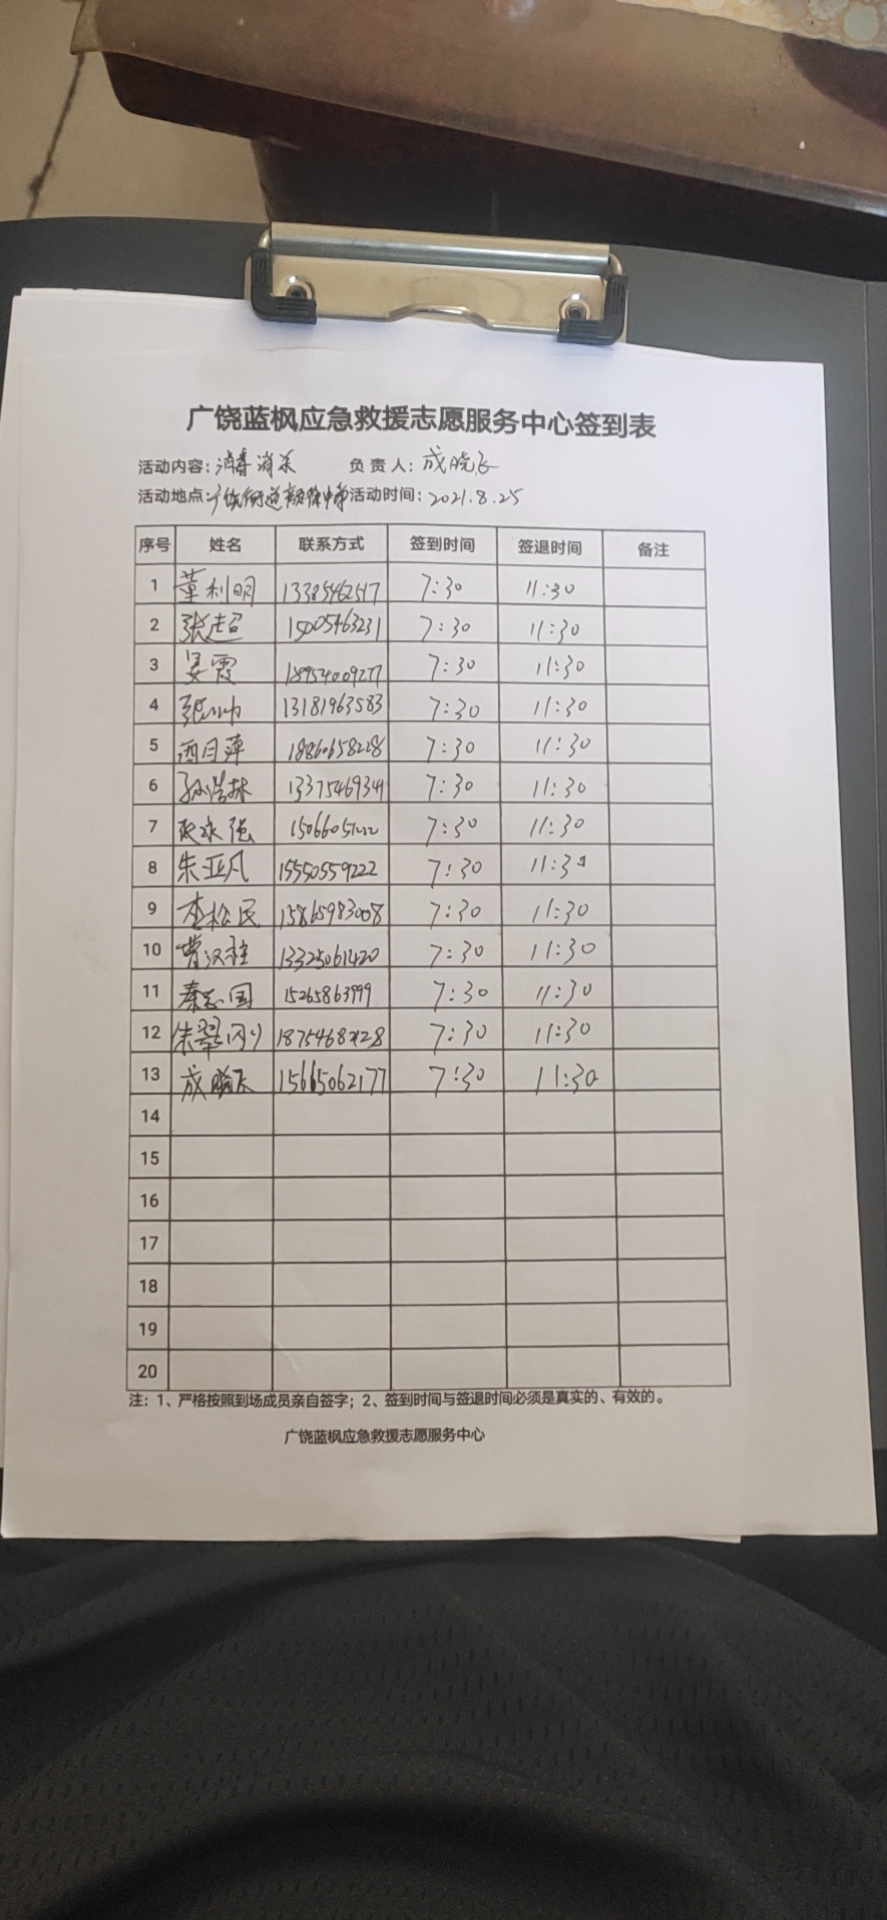 广饶蓝枫应急救援志愿服务中心签到表
活动内容：消毒消杀 负责人：成晓飞
活动地点：广饶街道 活动时间：2021.8.25
序号 姓名 联系方式 签到时间 签退时间 备注
1 董利明 13385462517 7:30 11:30
2 张超 15005463231 7:30 11:30
3 晏霞 18954009277 7:30 11:30
4 13181963583 7:30 11:30
5 18860658228 7:30 11:30
6 孙浩林 13375469341 7:30 11:30
7 7:30 11:30
8 朱亚凡 15550559222 7:30 11:30
9 李松民 15865983008 7:30 11:30
10 13325061420 7:30 11:30
11 秦志国 15265863999 7:30 11:30
12 7:30 11:30
13 成晓飞 15665062177 7:30 11:30
14
15
16
17
18
19
20
注：1、严格按照到场成员亲自签字；2、签到时间与签退时间必须是真实的、有效的。
广饶蓝枫应急救援志愿服务中心